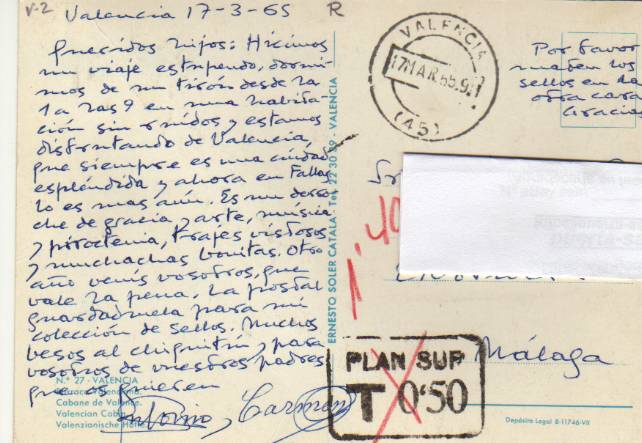 V-2 Valencia 17-3-65
R
Queridos hijos: Hicimos
un viaje estupendo, dormi-
mos de un tirón desde la
1 a las 9 en una habita-
ción sin ruidos y estamos
disfrutando de Valencia,
que siempre es una ciudad
espléndida y ahora en Fallas
lo es mas aún. Es un derro-
che de gracia y arte, música
y pirotecnia, trajes vistosos
y muchachas bonitas. Otro
año venis vosotros, que
vale la pena. La postal
guardadmela para mi
colección de sellos. Muchos
besos al chiquitin y para
vosotros de vuestros padres
que os quieren
Carmen
Nº 27 - VALENCIA
Cabane de Valence
Valencian Cabin
Valenzianische
ERNESTO SOLER CATALA - Tel. 22 30 59 - VALENCIA
VALENCIA
17 MAR 65
(45)
Por favor
maten los
sellos en la
otra cara
Gracias
1'40
PLAN SUP
T 0'50
Málaga
Depósito Legal B-11746-VII